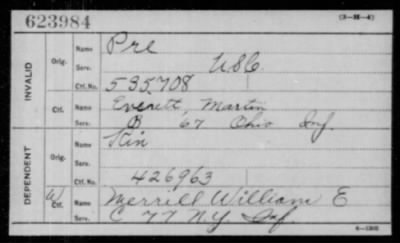 623984
(3-M-4)
INVALID
Orig. Name Pre
Serv. U.S.C.
Ctf. No. 535.708
Ctf. Name Everett, Martin
Serv. B 67 Ohio Inf.
DEPENDENT
Orig. Name Kin
Serv.
Ctf. No. 426963
W Ctf. Name Merrill William E
Serv. C 77 N.Y. Inf.